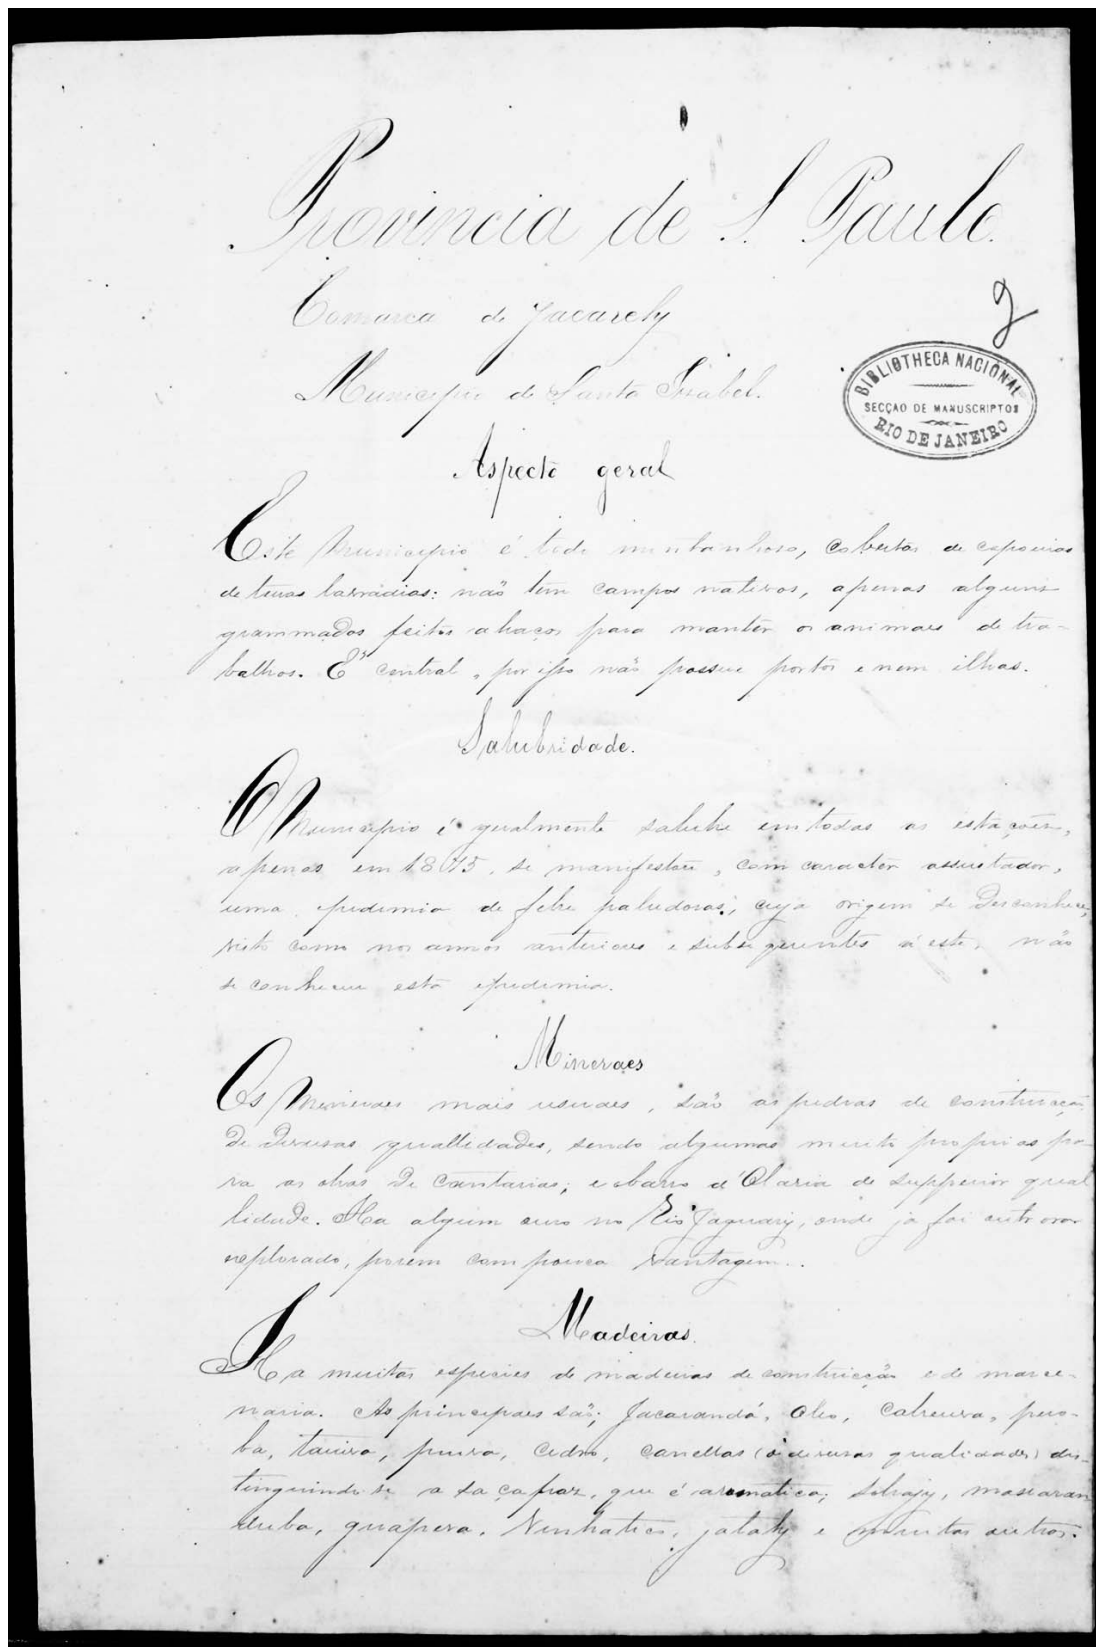 Provincia de S. Paulo.
Comarca de Jacarehy
2
Municipio de Santa Izabel.
BIBLIOTHECA NACIONAL
SECÇÃO DE MANUSCRIPTOS
RIO DE JANEIRO
Aspecto geral
Este Municipio é todo montanhoso, cobertos de capoeiras
de terras lavradias: não tem campos nativos, apenas alguns
grammados feitos a braços para manter os animaes de tra-
balhos. E' central, por isso não possue portos e nem ilhas.
Salubridade.
O Municipio é geralmente salubre em todas as estações,
apenas em 1875, se manifestou, com caracter assustador,
uma epidemia de febre paludosas, cuja origem se desconhece,
visto como nos annos anteriores e subsequentes á este, não
se conheceu esta epidemia.
Mineraes
Os Mineraes mais usuaes, são as pedras de construcção
de diversas quallidades, sendo algumas muito proprias pa-
ra as obras de cantarias; e o barro d'Olaria de supperior qual
lidade. Ha algum ouro no Rio Jaguary, onde já foi outr'ora
explorado, porem com pouca vantagem.
Madeiras.
Ha muitas especies de madeiras de construcção e de marce-
naria. As principaes são; Jacarandá, Oleo, Cabreuva, pero-
ba, cedro, canellas (de diversas qualidades) dis-
tinguindo-se a saçafraz, que é aromatica; massaran
duba, guapeva, Vinhatico, jatahy e muitas outras.